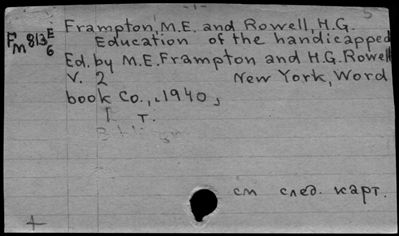 Frampton, M.E. and Rowell, H.G.
Fm 813 E/6
Education of the handicapped
Ed. by M.E. Frampton and H.G. Rowell
V. 2 New York, Word
book Co., 1940,
T.
см след. карт.